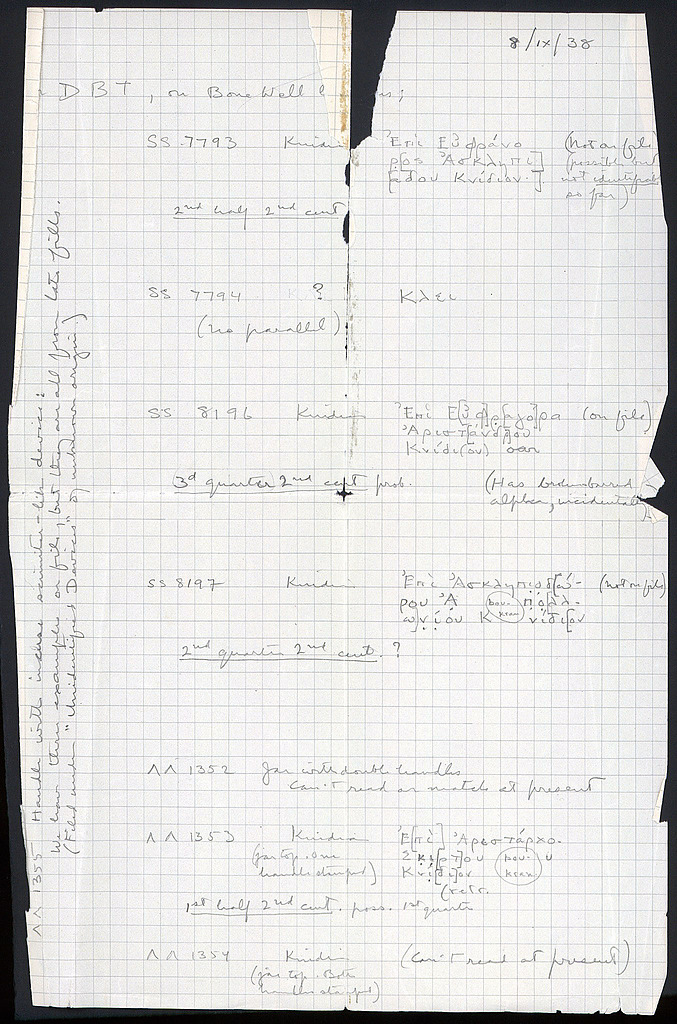 8/IX/38
DBT, on Bone Well
SS 7793 Knidian Ἐπὶ Εὐφράνο (Not on file
ρ[ος Ἀσκληπι] (possible but
[άδου Κνίδιον.] not identifiable
so far)
2nd half 2nd cent
SS 7794 ? Κλει
(no parallel)
SS 8196 Knidian Ἐπὶ Ε[ὐ]φ[ρ]αγό]ρα (on file)
Ἀριστ[άνδ]ρου
Κνίδι(ον)
3d quarter 2nd cent prob. (Has broken barred
alpha, incidentally)
SS 8197 Knidian Ἐπὶ Ἀσκληπιοδ[ώ- (not on file)
ρου Ἀ (βου- πόλλ-
ωνίου Κ κραν) νίδι[ον
2nd quarter 2nd cent. ?
ΛΛ 1352 Jar with double handles
Can't read or match at present
ΛΛ 1353 Knidian Ἐ[πὶ] Ἀριστάρχο-
(jar top. One Σκι[ρ]του (βου- υ
handle stamped) Κνίδ]ιον κραν)
(retr.
1st half 2nd cent. poss. 1st quarter
ΛΛ 1354 Knidian (Can't read at present)
(jar top. Both
handles stamped)
ΛΛ 1355 Handle with incuse scimiter-like device:
We have three examples on file, but they are all from late fills.
(Filed under "Unidentified Devices" of unknown origin.)